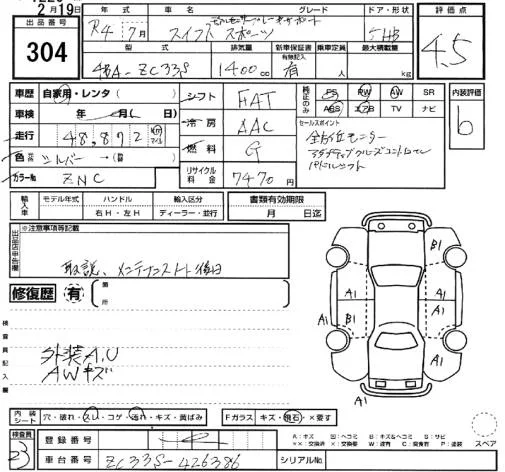 2月19日
出品番号 304
年式 車名 グレード ドア・形状 評価点
R4 7月 スイフト スポーツ 5HB 4.5
型式 排気量 新車保証書 有無記入 乗車定員 最大積載量
4BA-ZC33S 1400cc 有 人 kg
車歴 自家用・レンタ シフト FAT 純正のみ PS PW AW SR 内装評価
車検 年 月 冷房 AAC ABS エアB TV ナビ b
走行 48,892 km マイル セールスポイント
全方位モニター
アダプティブクルーズコントロール
パドルシフト
色 シルバー → 燃料 G
カラーNo ZNC リサイクル料金 7470円
輸入車 モデル年式 ハンドル 輸入区分 書類有効期限
右H・左H ディーラー・並行 月 日迄
出品店申告欄 ※注意事項等記載
取説、メンテナンスノート後日
修復歴 有 箇所
検査員記入欄
外装A,U
AWキズ
B1
A1
A1
A1
A1
B1
A1
内装シート 穴・破れ・スレ・コゲ・汚れ・キズ・黄ばみ Fガラス キズ・飛石・×要す
検査員 23 登録番号
A：キズ U：凹ミ B：キズ&ヘコミ S：サビ
××：交換済 ×：要交換 W：波有 C：腐食有 P：塗装 スペア
車台番号 ZC33S-426386 シリアルNo.